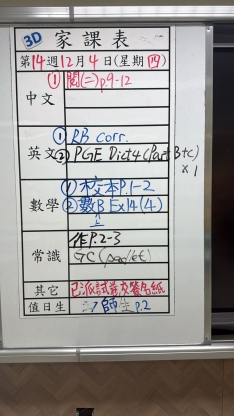 3D 家課表
第14週12月4日(星期四)
中文 ① 閱(二)p.9-12
英文 ① RB corr.
② PGE Dict 4 (Part B+C)
x 1
數學 ① 校本P.1-2
② 數B Ex14(4)
上
常識 作P.2-3
GC (padlet)
其它 已派試卷交簽名紙
值日生 P.2